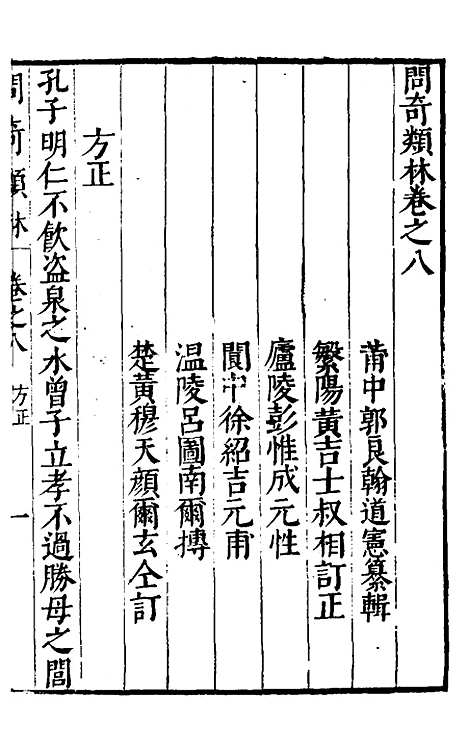 問奇類林卷之八
莆中郭良翰道憲纂輯
繁陽黃吉士叔相訂正
廬陵彭惟成元性
閬中徐紹吉元甫
温陵呂圖南爾摶
楚黃穆天顔爾玄仝訂
方正
孔子明仁不飲盜泉之水曾子立孝不過勝母之閭
問奇類林 卷之八 方正 一